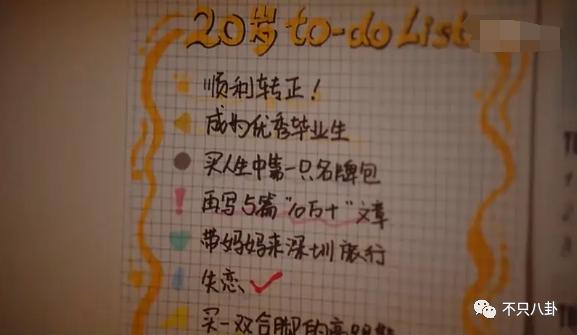 20岁to-do List
顺利转正！
成为优秀毕业生
买人生中第一只名牌包
再写5篇“10万+”文章
带妈妈来深圳旅行
失恋 ✓
买一双合脚的高跟鞋
不只八卦